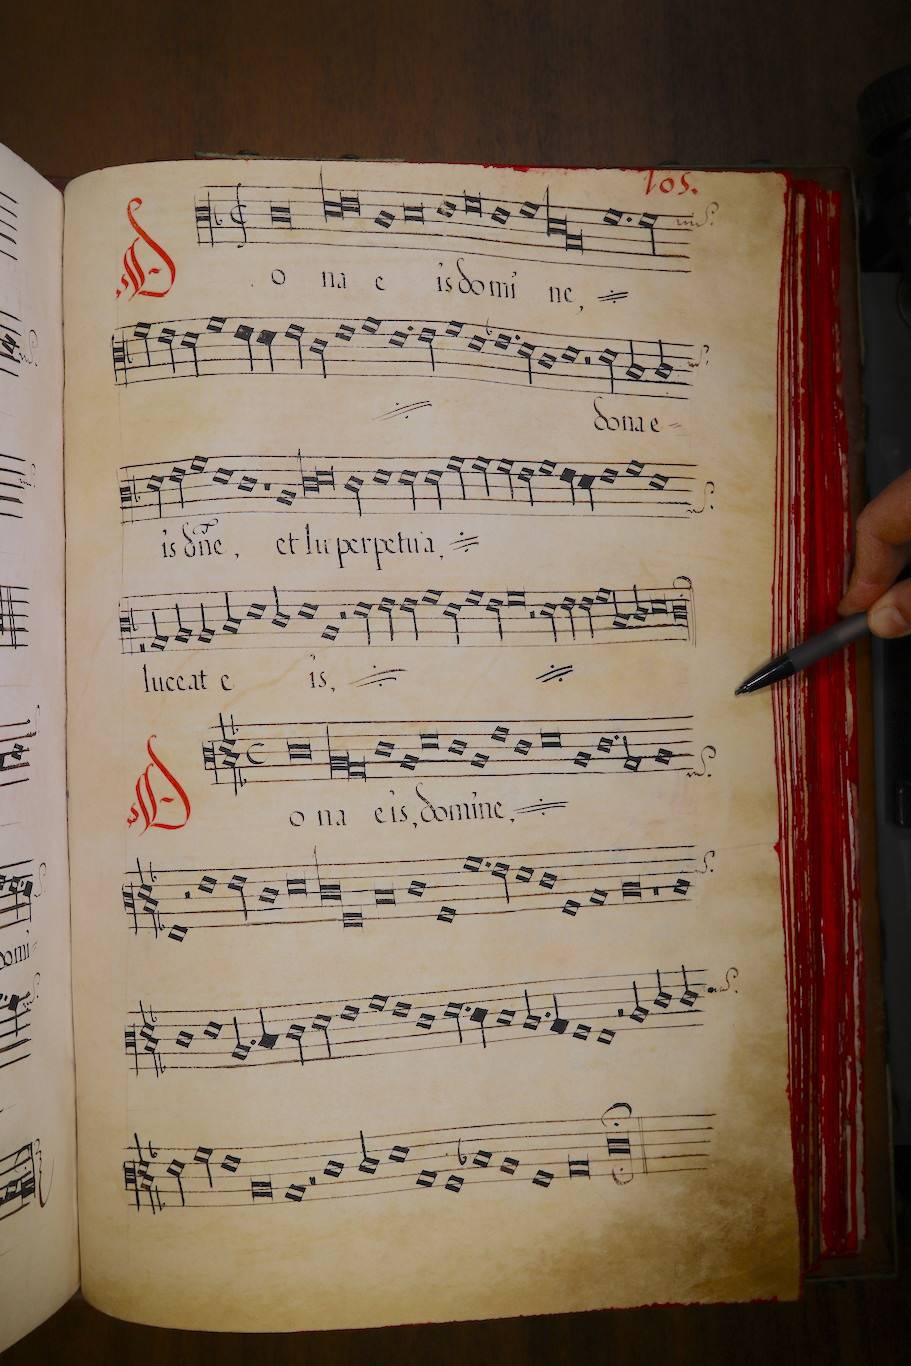 105.
Do na e is domi ne,
dona e
is dñe, et lu perpetua,
luceat e is,
Do na eis, domine,
domi